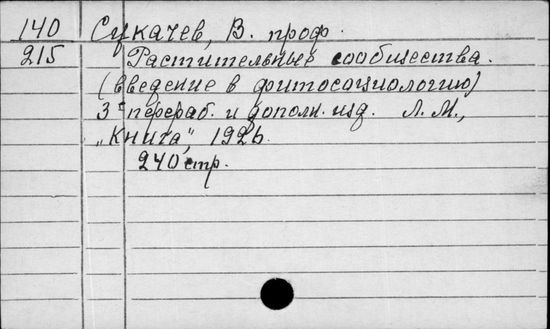 140 Сукачев, В. проф.
215 Растительные сообщества.
(введение в фитосоциологию)
3е перераб. и дополн. изд. Л. М.,
„Книга", 1926.
240 стр.